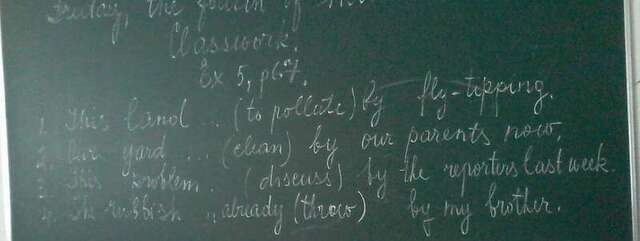 Friday, the fourth of
Classwork.
Ex 5, p67.
1. This land ... (to pollute) by fly-tipping.
2. Our yard ... (clean) by our parents now.
3. This problem ... (discuss) by the reporters last week.
4. The rubbish ... already (throw) by my brother.